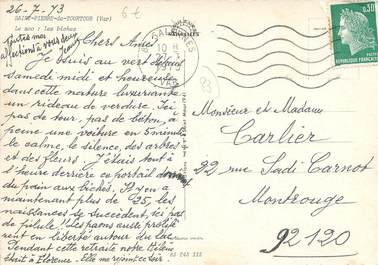 26-7.73
6€
SAINT-PIERRE-de-TOURTOUR (Var)
Le zoo : Les biches
Toutes mes
affections à vous deux
Jean
Chers Amis,
Je suis au vert depuis
samedi midi et heureuse
dans cette nature luxuriante
un rideau de verdure. Ici
pas de tour, pas de béton, à
peine une voiture en 5 minutes
le calme, le silence, des arbres
et des fleurs. J'étais tout à
l'heure derrière un portail donnant
du pain aux biches. Il y en a
maintenant plus de 25, les
naissances se succèdent, ici pas
de pilule. Les paons aussi prolifè-
rent en liberté autour du lac
Pendant cette retraite notre
était à Florence. Elle me rejoint ce soir.
83 745 112
SALERNES
10 H
27-7
1973
VAR
0,30
REPUBLIQUE FRANÇAISE
83
Monsieur et Madame
Carlier
22 rue Sadi Carnot
Montrouge
92120